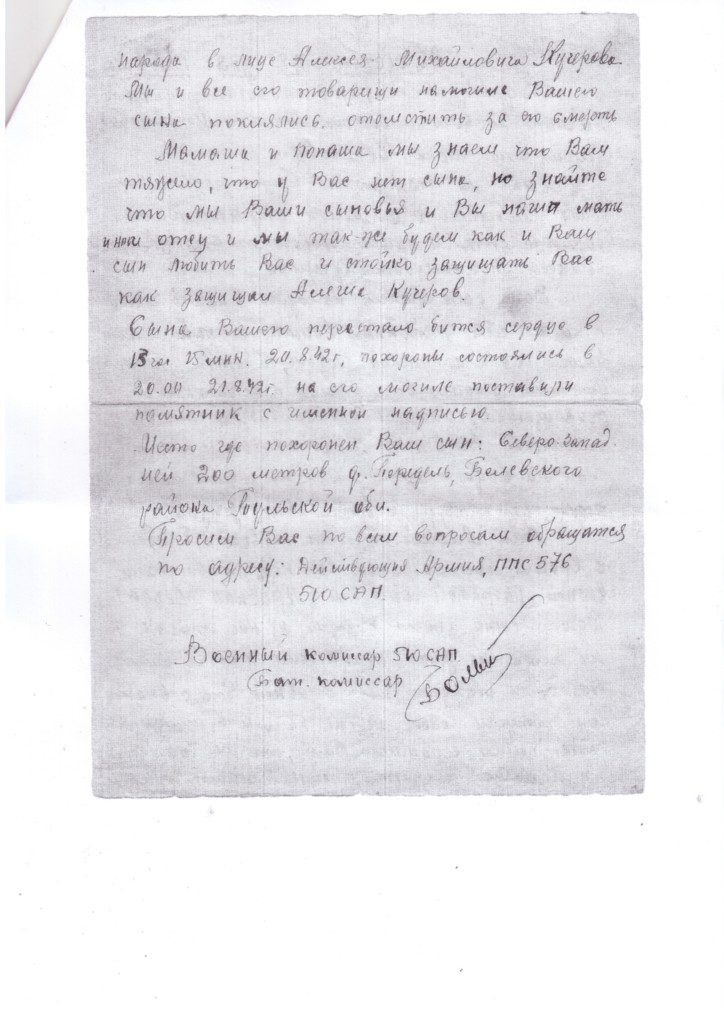 народа в лице Алексея Михайловича Кучерова
Мы и все его товарищи на могиле Вашего
сына поклялись отомстить за его смерть
Мамаша и Попаша мы знаем что Вам
тяжело, что у Вас нет сына, но знайте
что мы Ваши сыновья и Вы наша мать
и наш отец и мы так-же будем как и Ваш
сын любить Вас и стойко защищать Вас
как защищал Алеша Кучеров.
Сына Вашего перестало бится сердце в
15 мин. 20.8.42г, похороны состоялись в
20.00 21.8.42г. на его могиле поставили
памятник с именной надписью.
Место где похоронен Ваш сын: Северо-запад
ней 200 метров д. Передель, Белевского
района Тульской обл.
Просим Вас по всем вопросам обращатся
по адресу: Действующия Армия, ППС 576
510 САП.
Военный комиссар 510 САП
Бат. комиссар